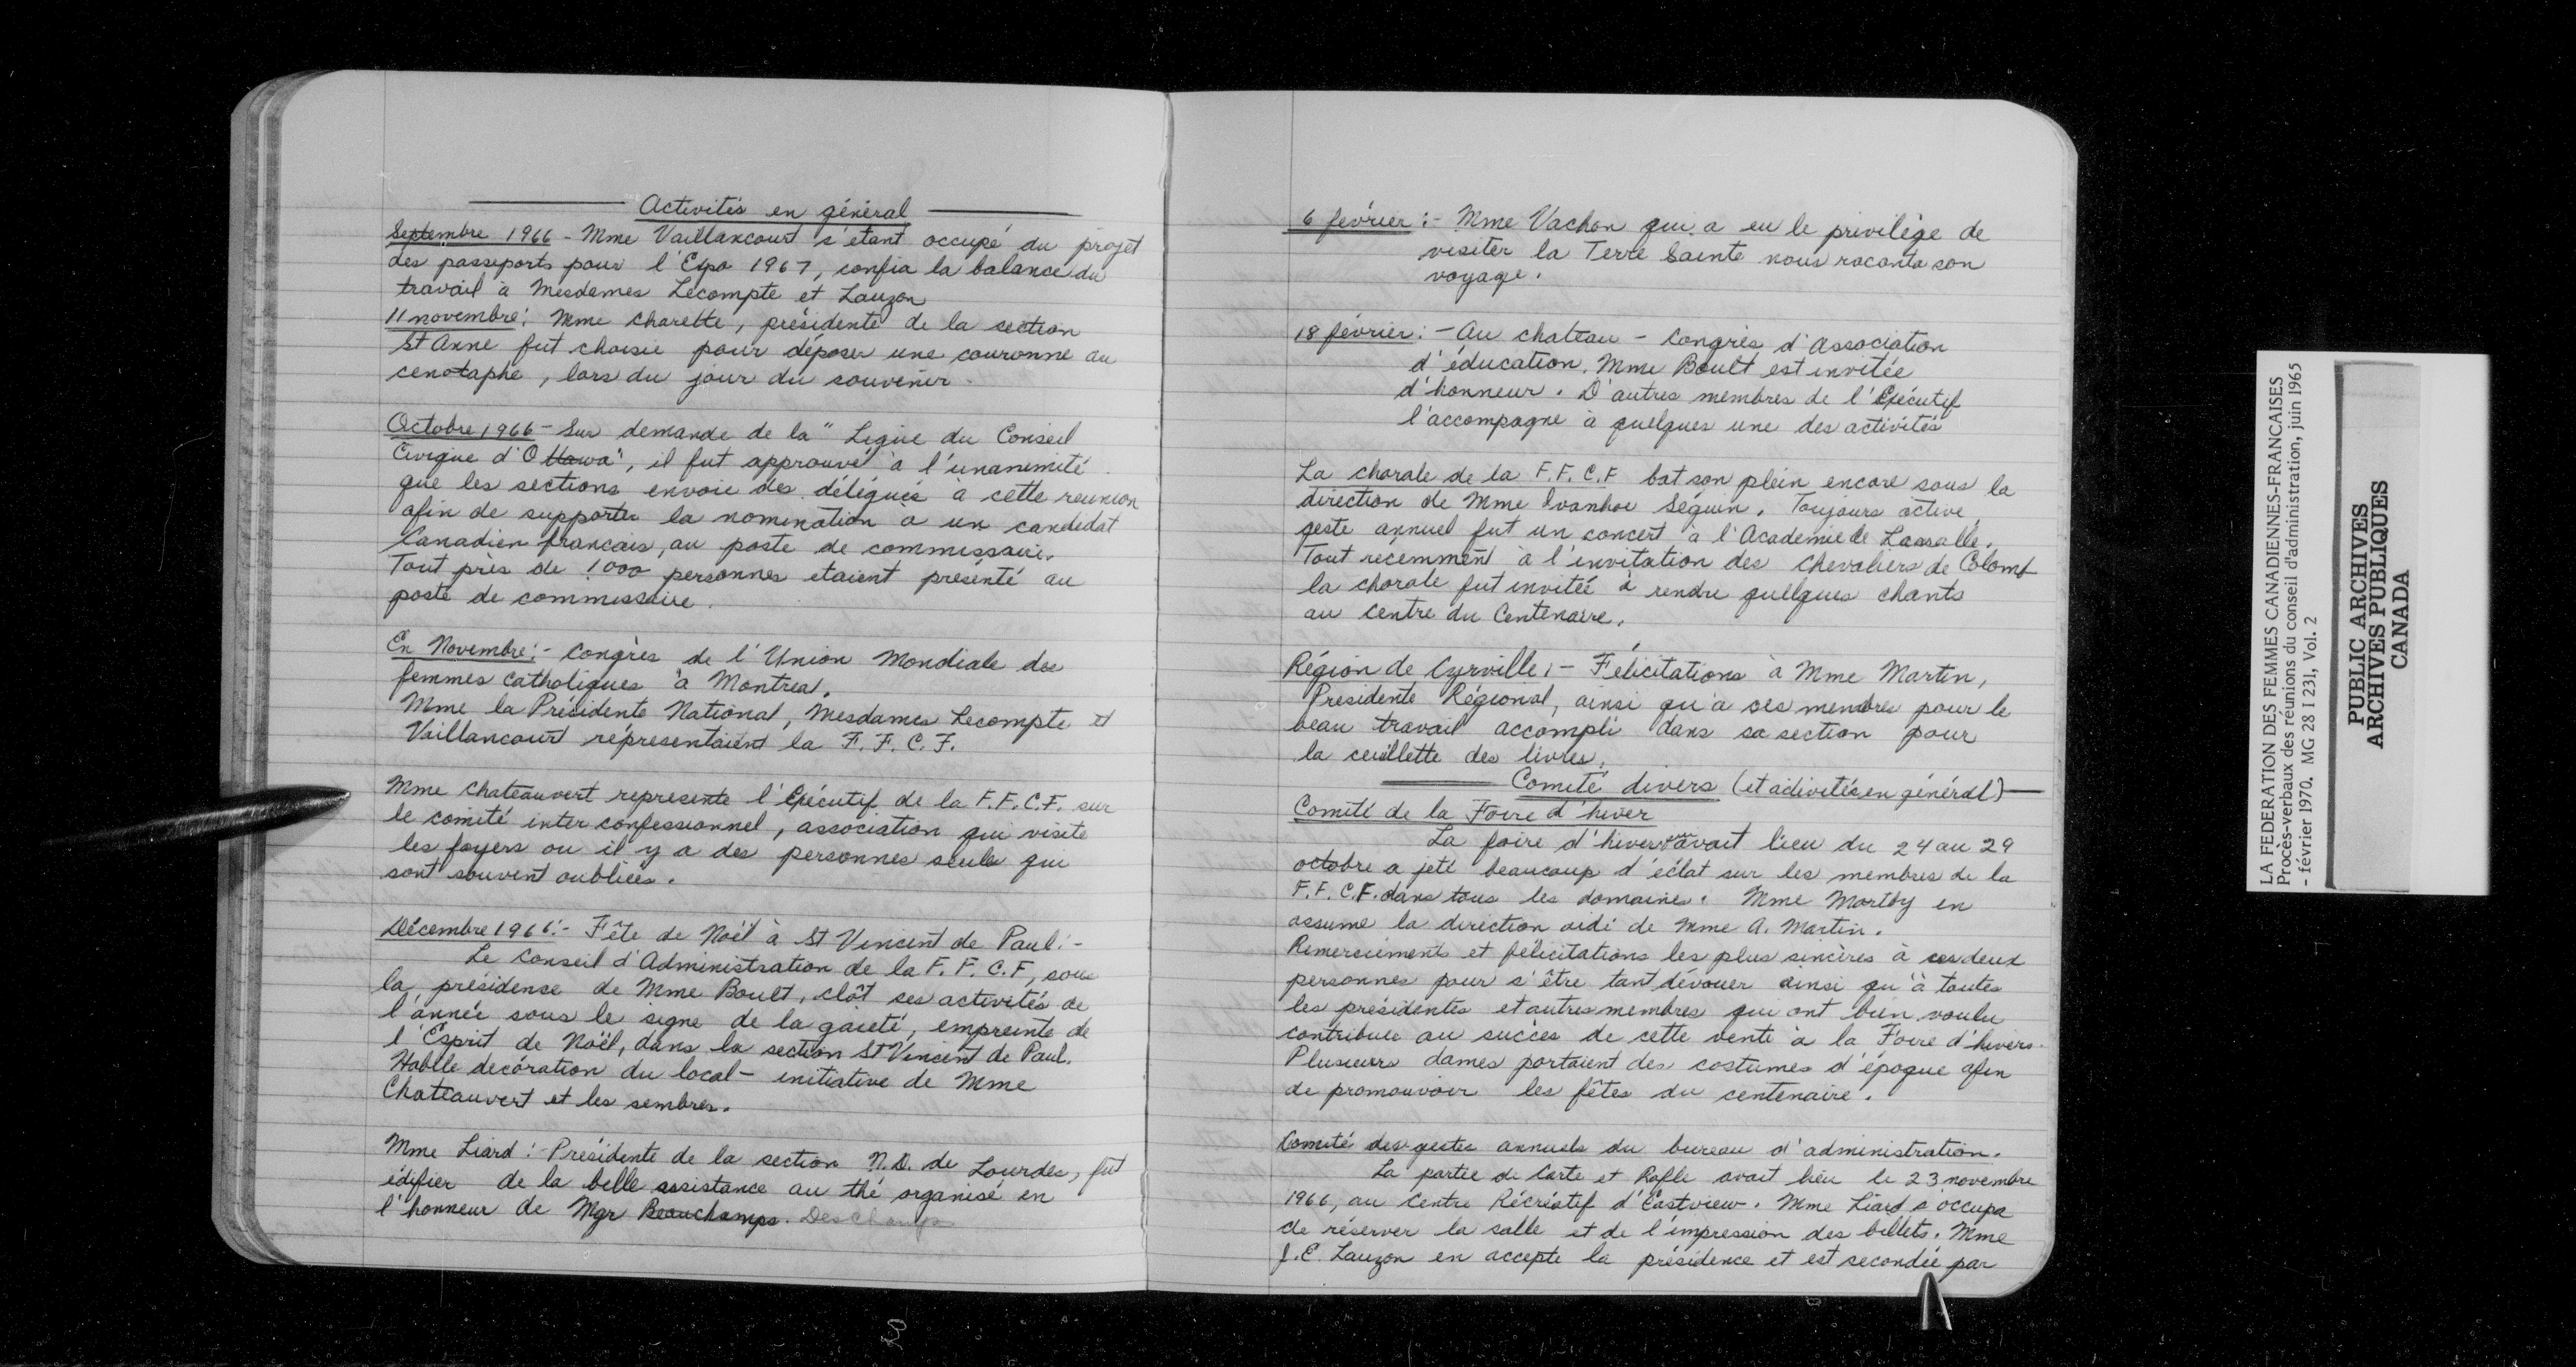 Activités en général
Septembre 1966 - Mme Vaillancourt s'étant occupé du projet
des passeports pour l'Expo 1967, confia la balance du
travail à Mesdames Lecompte et Lauzon
11 novembre: Mme Charette, présidente de la section
St Anne fut choisie pour déposer une couronne au
cenotaphe, lors du jour du souvenir.
Octobre 1966 - Sur demande de la "Ligue du Conseil
Civique d'Ottawa", il fut approuvé à l'unanimité
que les sections envoie des délégués à cette reunion
afin de supporter la nomination à un candidat
Canadien francais, au poste de commissaire.
Tout près de 1000 personnes etaient présenté au
poste de commissaire.
En Novembre:- Congrès de l'Union Mondiale des
femmes Catholiques à Montreal.
Mme la Présidente National, Mesdames Lecompte et
Vaillancourt représentaient la F.F.C.F.
Mme Chateauvert represente l'Exécutif de la F.F.C.F. sur
le comité inter confessionnel, association qui visite
les foyers ou il y a des personnes seules qui
sont souvent oubliées.
Décembre 1966:- Fête de Noël à St Vincent de Paul:-
Le Conseil d'Administration de la F.F.C.F, sous
la présidense de Mme Boult, clôt ses activités de
l'année sous le signe de la gaieté, empreinte de
l'Esprit de Noël, dans la section St Vincent de Paul.
decoration du local - initiative de Mme
Chateauvert et les sembres.
Mme Liard: Présidente de la section N.D. de Lourdes, fut
édifier de la belle assistance au thé organisé en
l'honneur de Mgr Beauchamps. DesChamps
6 février:- Mme Vachon qui a eu le privilège de
visiter la Terre Sainte nous raconta son
voyage.
18 février:- Au chateau - Congrès d'Association
d'éducation. Mme Boult est invitée
d'honneur. D'autres membres de l'Exécutif
l'accompagne à quelques une des activités
La chorale de la F.F.C.F bat son plein encore sous la
direction de Mme Ivanhoe Séguin. Toujours active,
geste annuel fut un concert à l'Academie de Lassalle.
Tout recemment à l'invitation des Chevaliers de Colomb
la chorale fut invitée à rendre quelques chants
au centre du Centenaire.
Région de Cyrville:- Félicitations à Mme Martin,
Presidente Régional, ainsi qu'à ses membres pour le
beau travail accompli dans sa section pour
la ceuillette des livres.
Comité divers (et activités en général)
Comité de la Foire d'hiver
La foire d'hivers avait lieu du 24 au 29
octobre a jeté beaucoup d'éclat sur les membres de la
F.F.C.F. dans tous les domaines. Mme Martby en
assume la direction aidé de Mme A. Martin.
Remerciements et félicitations les plus sincères à ces deux
personnes pour s'être tant dévouer ainsi qu'à toutes
les présidentes et autres membres qui ont bien voulu
contribuer au succès de cette vente à la Foire d'hivers.
Plusieurs dames portaient des costumes d'époque afin
de promouvoir les fêtes du centenaire.
Comité des gestes annuels du bureau d'administration.
La partie de Carte et Rafle avait lieu le 23 novembre
1966, au Centre Récréatif d'Eastview. Mme Liard s'occupa
de réserver la salle et de l'impression des billets. Mme
J.E. Lauzon en accepte la présidence et est secondée par
LA FEDERATION DES FEMMES CANADIENNES-FRANCAISES
Procès-verbaux des réunions du conseil d'administration, juin 1965
- février 1970. MG 28 I 231, Vol. 2
PUBLIC ARCHIVES
ARCHIVES PUBLIQUES
CANADA